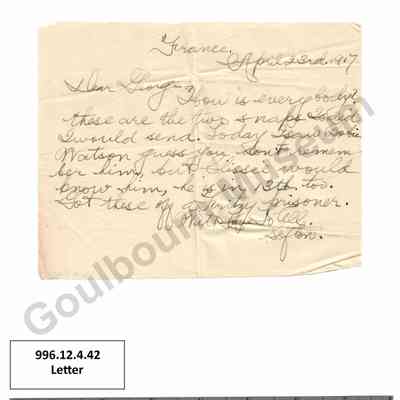 France.
April 23rd. 1917.
Dear George
How is everybody
these are the two snaps I said
I would send. Today I saw
Watson guess you don't remem
ber him, but would
know him, he is in 13th too.
Got these off a prisoner.
With love to all.
Goulbourn Museum
996.12.4.42
Letter